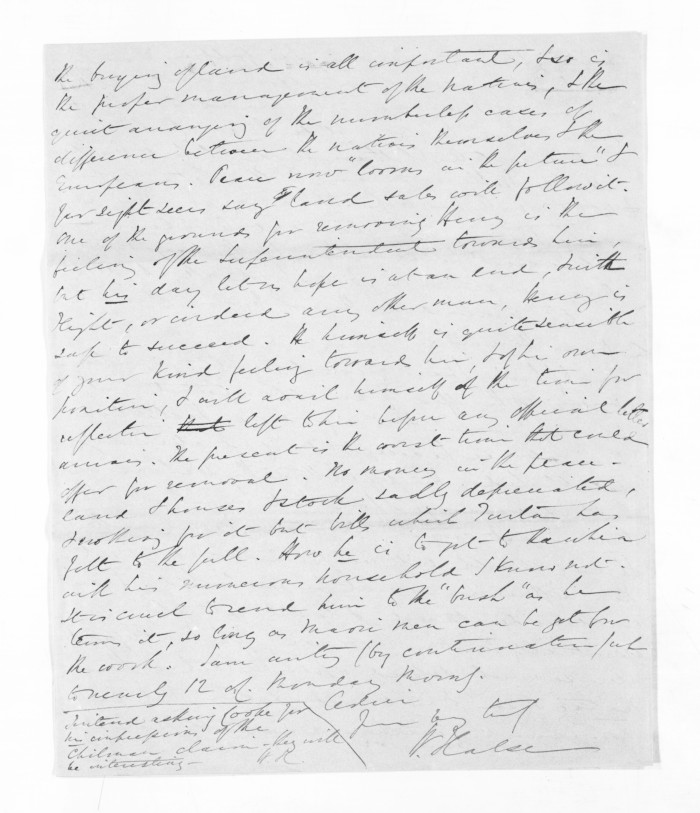 the buying of land is all important, & so is
the proper management of the natives, & the
quiet arranging of the numberless cases of
difference between the natives themselves & the
Europeans. Peace now "looms in the future" &
far sight seers say land sales will follow it.
One of the grounds for removing Henry is the
feeling of the Superintendent towards him,
but his day let us hope is at an end, & with
Flight, or indeed any other man, Henry is
safe to succeed. He himself is quite sensible
of your kind feeling towards him, & of his own
position, & will avail himself of the time for
reflection that left to him before any official letter
arrives. The present is the worst time that could
offer for removal. No money in the place -
land & houses & stock sadly depreciated,
& nothing for it but bills which Turton has
felt to the full. How he is to get to Kawhia
with his numerous household I know not.
It is cruel to send him to the "bush" as he
terms it, so long as Maori men can be got for
the work. I am writing (by continuation) up
to nearly 12 o'C. Monday Morng.
Adieu
Your very truly
W. Halse
Intend asking Cooke for
his impressions of the
Chilman claim - they will
be interesting -